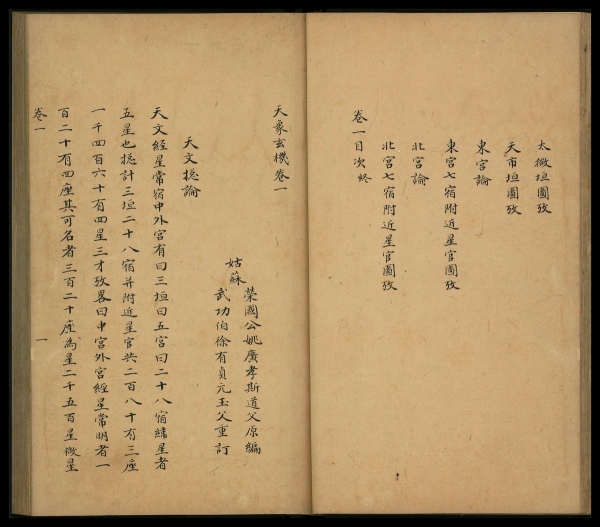 太微垣圖攷
天市垣圖攷
東宮論
東宮七宿附近星官圖攷
北宮論
北宮七宿附近星官圖攷
卷一目次終
天象玄機卷一
榮國公姚廣孝斯道父原編
姑蘇
武功伯徐有貞元玉父重訂
天文捴論
天文經星常宿中外宮有曰三垣曰五宮曰二十八宿緯星者
五星也捴計三垣二十八宿并附近星官共二百八十有三座
一千四百六十有四星三才攷畧曰中宮外宮經星常明者一
百二十有四座其可名者三百二十座為星二千五百星微星
卷一
一